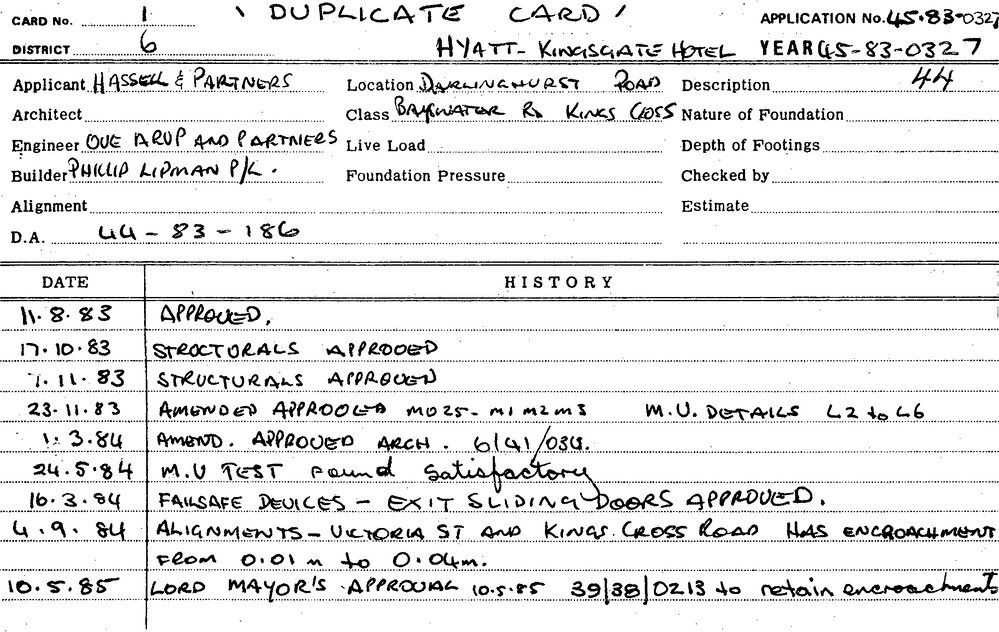 CARD No. 1 ' DUPLICATE CARD ' APPLICATION No. 45-83-0327
DISTRICT 6 HYATT-KINGSGATE HOTEL YEAR 45-83-0327
Applicant HASSELL & PARTNERS Location DARLINGHURST ROAD Description 44
Architect Class BAYSWATER RD KINGS CROSS Nature of Foundation
Engineer OVE ARUP AND PARTNERS Live Load Depth of Footings
Builder PHILLIP LIPMAN P/L. Foundation Pressure Checked by
Alignment Estimate
D.A. 44-83-186
DATE HISTORY
11.8.83 APPROVED.
17.10.83 STRUCTURALS APPROVED
7.11.83 STRUCTURALS APPROVED
23.11.83 AMENDED APPROVED M025-M1 M2 M3 M.U. DETAILS L2 to L6
1.3.84 AMEND. APPROVED ARCH. 6/41/034.
24.5.84 M.U TEST found satisfactory
16.3.84 FAILSAFE DEVICES - EXIT SLIDING DOORS APPROVED.
4.9.84 ALIGNMENTS - VICTORIA ST AND KINGS CROSS ROAD HAS ENCROACHMENT
FROM 0.01m to 0.04m.
10.5.85 LORD MAYOR'S APPROVAL 10.5.85 39/38/0213 to retain encroachments